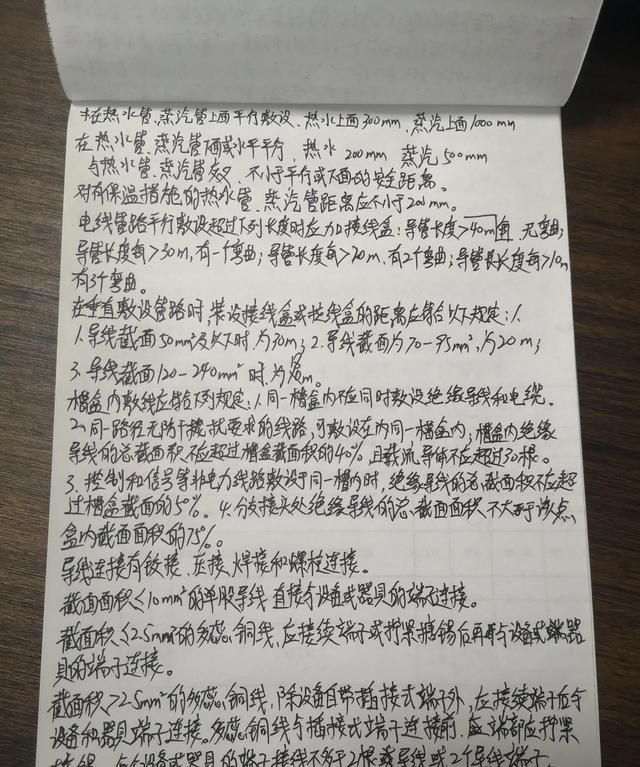 在热水管、蒸汽管上面平行敷设、热水上面300mm、蒸汽上面1000mm
在热水管、蒸汽管下面或水平平行,热水200mm 蒸汽500mm
与热水管、蒸汽管交叉,不小于平行或下面的安全距离。
对有保温措施的热水管、蒸汽管距离应不小于200mm。
电线管路平行敷设超过下列长度时应加接线盒:导管长度>40m 无弯曲;
导管长度每>30m,有一个弯曲;导管长度每>20m,有2个弯曲;导管长度每>10m
有3个弯曲。
在垂直敷设管路时,装设接线盒或拉线盒的距离应符合以下规定:1.
1.导线截面50mm²及以下时,为30m;2.导线截面为70-95mm²,为20m;
3.导线截面120-240mm²时,为18m。
槽盒内敷线应符合下列规定:1.同一槽盒内不应同时敷设绝缘导线和电缆。
2.同一路径无防干扰要求的线路,可敷设在内同一槽盒内;槽盒内绝缘
导线的总截面积不应超过槽盒截面积的40%,且载流导体不应超过30根。
3.控制和信号等非电力线路敷设于同一槽内时,绝缘导线的总截面积不应超
过槽盒截面的50%。4.分支接头处绝缘导线的总截面面积不大于该点
盒内截面面积的75%。
导线连接有铰接、压接、焊接和螺栓连接。
截面面积≤10mm²的单股导线直接与设备或器具的端子连接。
截面积≤2.5mm²的多芯铜线,应接续端子或拧紧搪锡后再与设备或器
具的端子连接。
截面积>2.5mm²的多芯铜线,除设备自带插接式端子外,应接续端子后与
设备和器具端子连接。多芯铜线与插接式端子连接前,端部应拧紧
搪锡。每个设备或器具的端子接线不多于2根导线或2个导线端子。